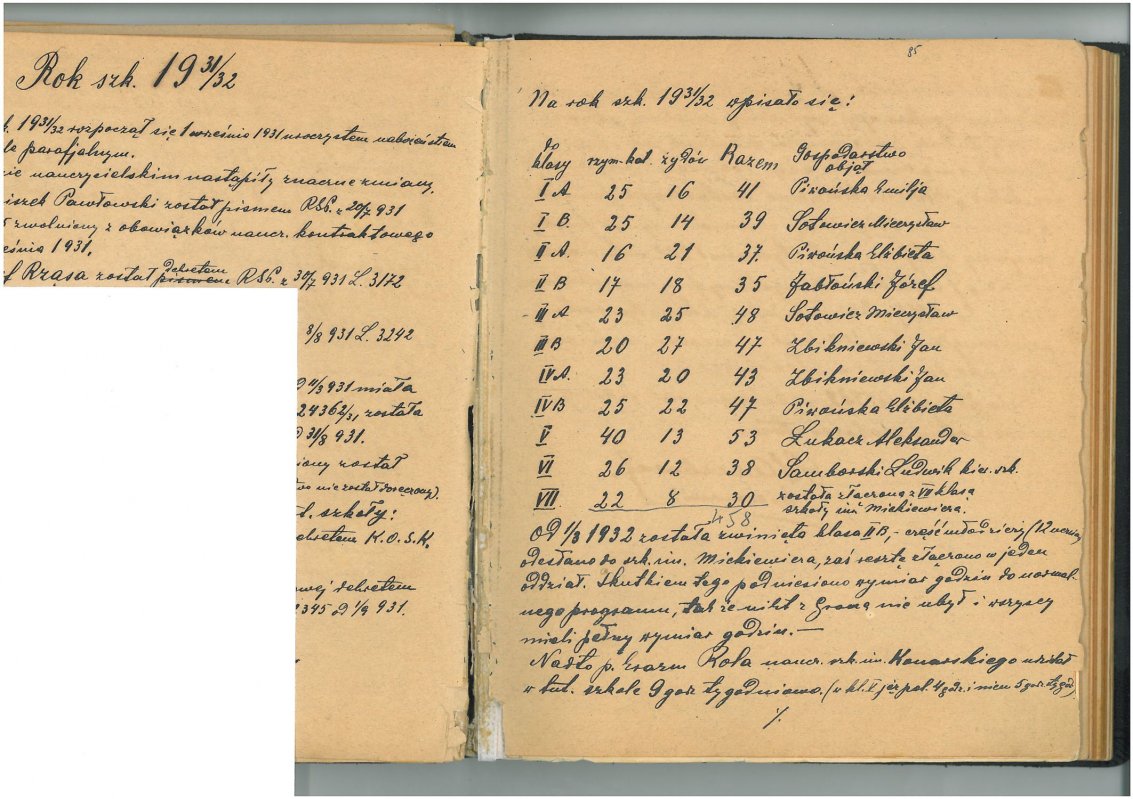 Rok szk. 19 31/32
19 31/32 rozpoczął się 1 września 1931 uroczystem nabożeństwem
parafjalnym.
nauczycielskim nastąpiły znaczne zmiany.
Pawłowski został pismem RSP. z 20/7 931
zwolniony z obowiązków naucz. kontraktowego
1931.
Rząsa został dekretem RSP. z 30/7 931 L. 3172
8/8 931 L. 3242
11/3 931 miała
24362/31 została
31/8 931.
został
nie został doręczony).
szkoły:
dekretem K.O.S.K.
dekretem
2345 od 1/9 931.
85
Na rok szk. 19 31/32 wpisało się:
do klasy rzym-kat. żydów Razem Gospodarstwo objął
I A. 25 16 41 Piwońska Emilja
I B. 25 14 39 Sołowicz Mieczysław
II A. 16 21 37. Piwońska Elżbieta
II B 17 18 35 Jabłoński Józef
III A 23 25 48 Sołowicz Mieczysław
III B 20 27 47 Zbikniewski Jan
IV A. 23 20 43 Zbikniewski Jan
IV B 25 22 47 Piwońska Elżbieta
V 40 13 53 Łukacz Aleksander
VI 26 12 38 Samborski Ludwik kier. szk.
VII. 22 8 30 została złączona z VII klasą
szkoły im. Mickiewicza.
458
Od 1/3 1932 została zwinięta klasa II B, - część młodzieży (12 uczniów)
odesłano do szk. im. Mickiewicza, zaś resztę złączono w jeden
oddział. Skutkiem tego podniesiono wymiar godzin do normal-
nego programu, tak że nikt z Grona nie ubył i wszyscy
mieli pełny wymiar godzin. —
Nadto p. Erazm Rola naucz. szk. im. Konarskiego udzielał
w tut. szkole 9 godz tygodniowo. (w kl. V jęz pol. 4 godz i niem 5 godz tygod)
./.